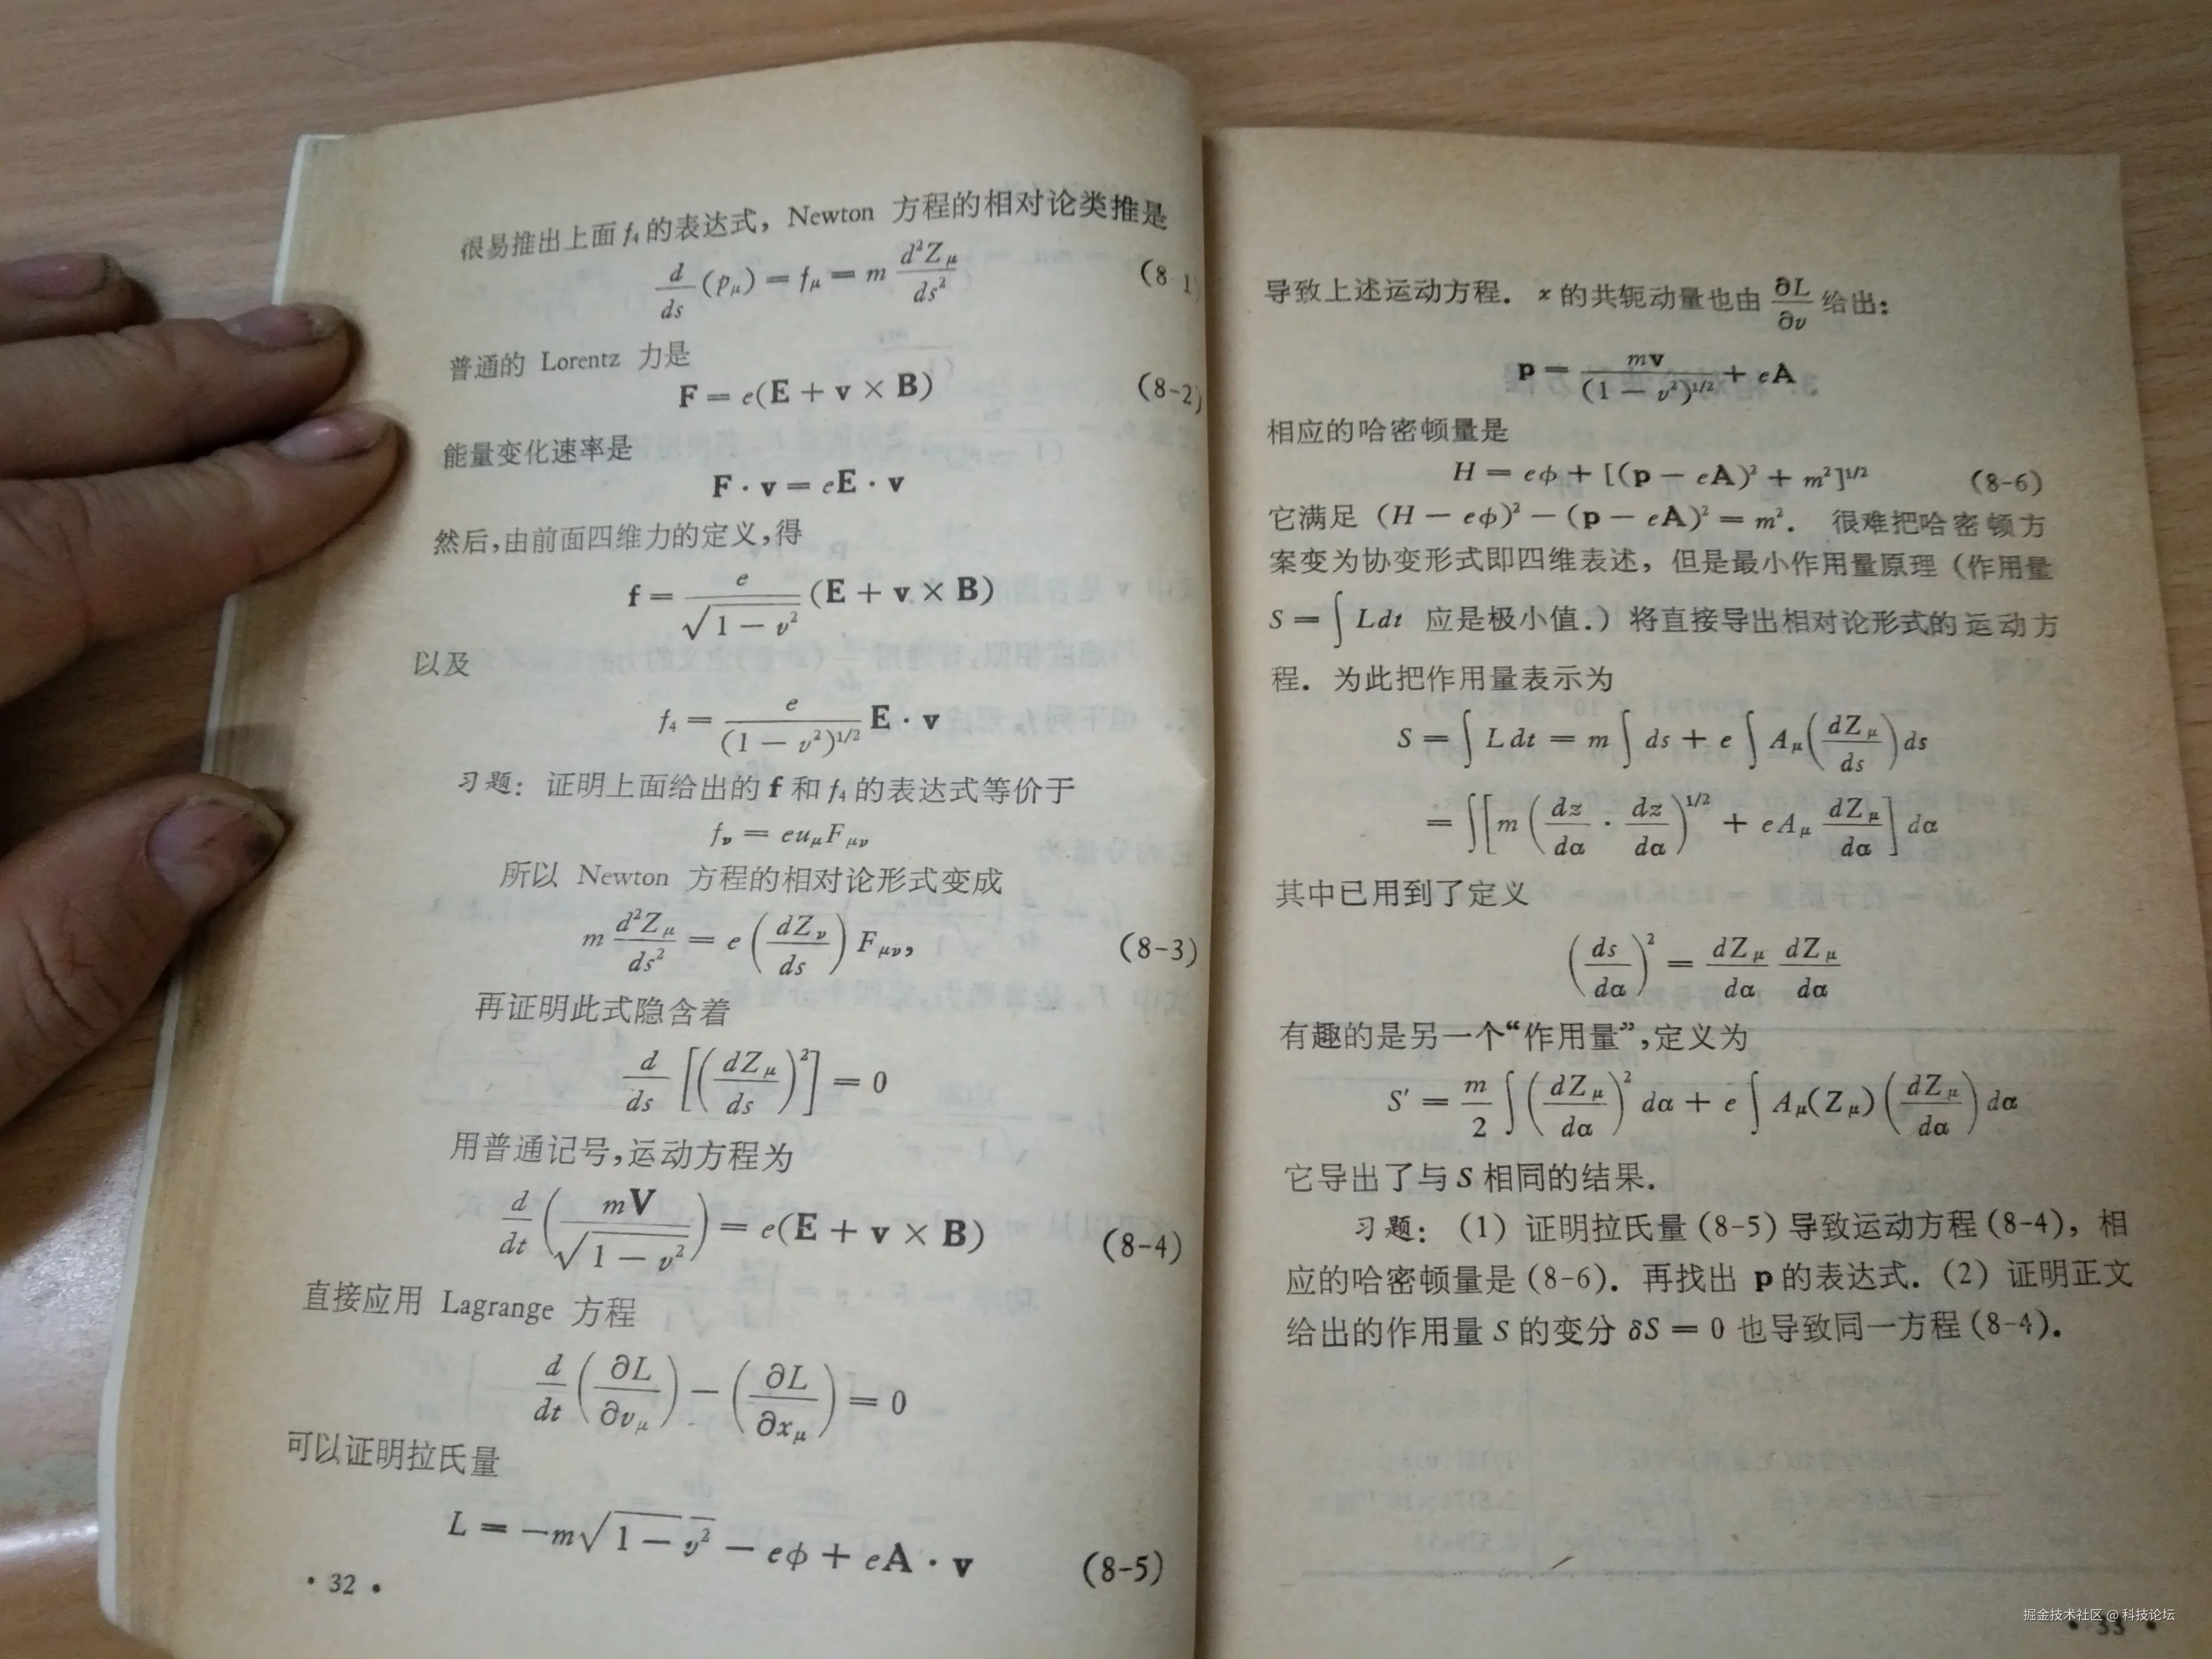 很易推出上面 f₄ 的表达式，Newton 方程的相对论类推是
d/ds (p_μ) = f_μ = m d²Z_μ/ds² (8-1)
普通的 Lorentz 力是
F = e(E + v × B) (8-2)
能量变化速率是
F · v = eE · v
然后，由前面四维力的定义，得
f = e/√(1 − v²) (E + v × B)
以及
f₄ = e/(1 − v²)^{1/2} E · v
习题：证明上面给出的 f 和 f₄ 的表达式等价于
f_ν = eu_μF_{μν}
所以 Newton 方程的相对论形式变成
m d²Z_μ/ds² = e (dZ_ν/ds) F_{μν}, (8-3)
再证明此式隐含着
d/ds [(dZ_μ/ds)²] = 0
用普通记号，运动方程为
d/dt (mV/√(1 − v²)) = e(E + v × B) (8-4)
直接应用 Lagrange 方程
d/dt (∂L/∂v_μ) − (∂L/∂x_μ) = 0
可以证明拉氏量
L = −m√(1 − v²) − eφ + eA · v (8-5)
· 32 ·
导致上述运动方程．x 的共轭动量也由 ∂L/∂v 给出：
p = mv/(1 − v²)^{1/2} + eA．
相应的哈密顿量是
H = eφ + [(p − eA)² + m²]^{1/2} (8-6)
它满足 (H − eφ)² − (p − eA)² = m²． 很难把哈密顿方
案变为协变形式即四维表述，但是最小作用量原理（作用量
S = ∫ Ldt 应是极小值．）将直接导出相对论形式的运动方
程．为此把作用量表示为
S = ∫ L dt = m ∫ ds + e ∫ A_μ(dZ_μ/ds) ds
= ∫[m (dz/dα · dz/dα)^{1/2} + eA_μ dZ_μ/dα] dα
其中已用到了定义
(ds/dα)² = dZ_μ/dα dZ_μ/dα
有趣的是另一个“作用量”，定义为
S′ = m/2 ∫ (dZ_μ/dα)² dα + e ∫ A_μ(Z_μ) (dZ_μ/dα) dα
它导出了与 S 相同的结果．
习题：（1）证明拉氏量（8-5）导致运动方程（8-4），相
应的哈密顿量是（8-6）．再找出 p 的表达式．（2）证明正文
给出的作用量 S 的变分 δS = 0 也导致同一方程（8-4）．
· 33 ·
掘金技术社区 @ 科技论坛